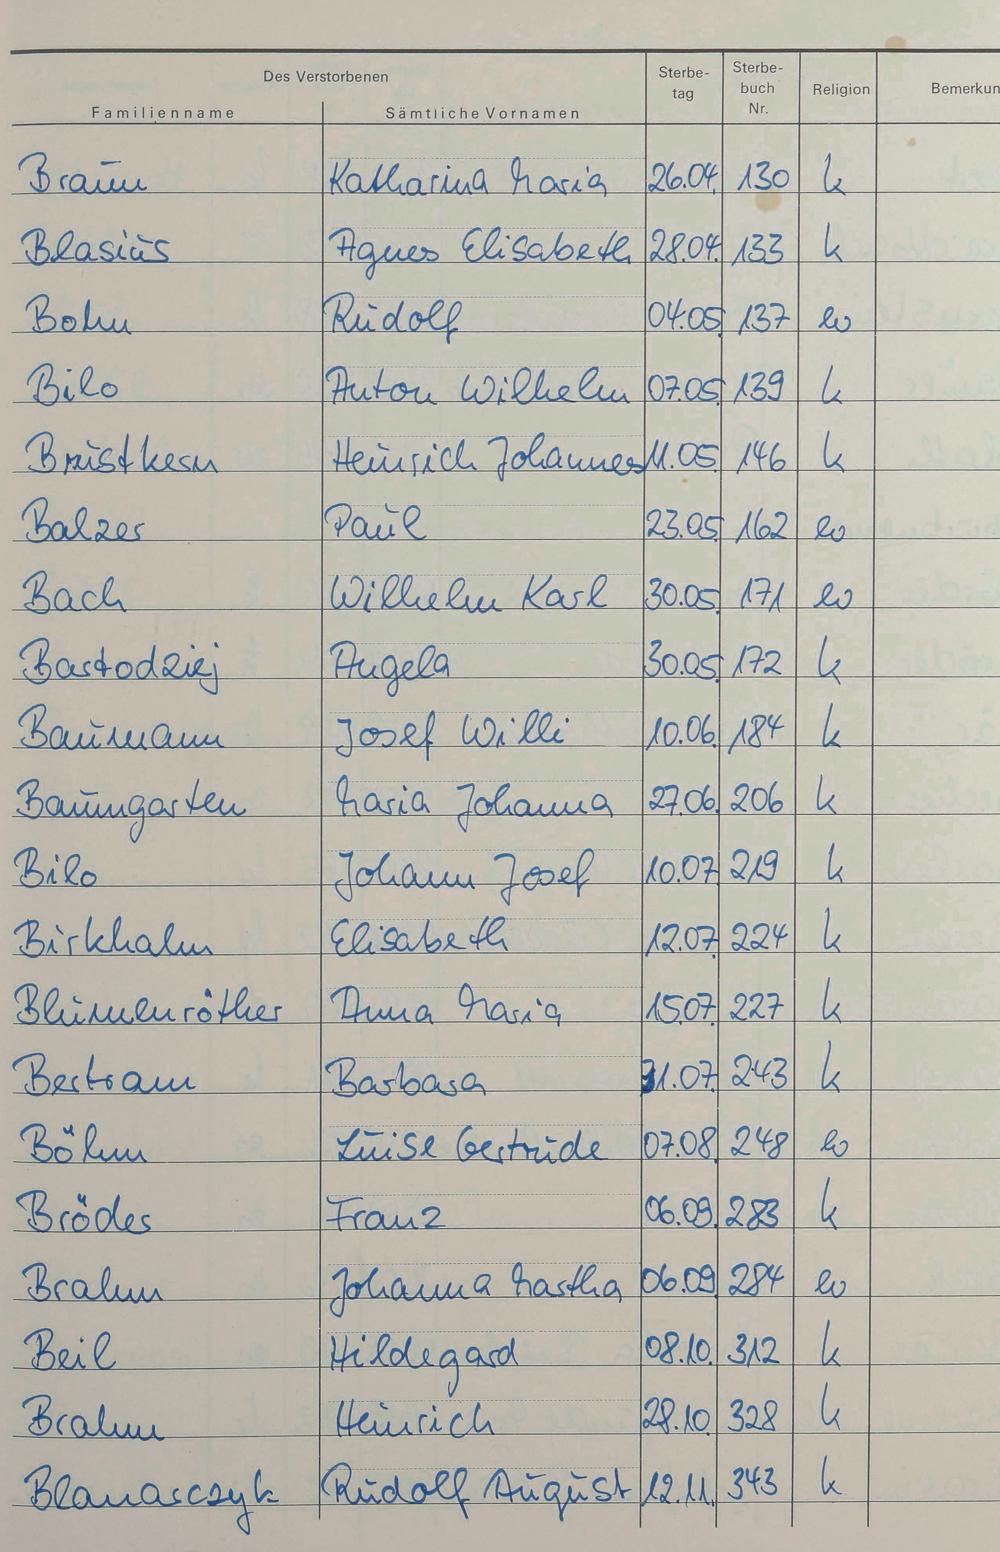 Des Verstorbenen
Familienname Sämtliche Vornamen Sterbe-tag Sterbe-buch Nr. Religion Bemerkun
Braun Katharina Maria 26.04. 130 k
Blasius Agnes Elisabeth 28.04. 133 k
Bohn Rudolf 04.05 137 ev
Bilo Anton Wilhelm 07.05 139 k
Brustkern Heinrich Johannes 11.05. 146 k
Balzer Paul 23.05. 162 ev
Bach Wilhelm Karl 30.05 171 ev
Bastodziej Angela 30.05 172 k
Baumann Josef Willi 10.06. 184 k
Baumgarten Maria Johanna 27.06. 206 k
Bilo Johann Josef 10.07 219 k
Birkhahn Elisabeth 12.07 224 k
Blumenröther Anna Maria 15.07. 227 k
Bertram Barbara 31.07. 243 k
Böhm Luise Gertrude 07.08. 248 ev
Brödes Franz 06.09. 283 k
Brahm Johanna Martha 06.09 284 ev
Beil Hildegard 08.10. 312 k
Brahm Heinrich 28.10. 328 k
Blanarczyk Rudolf August 12.11. 343 k